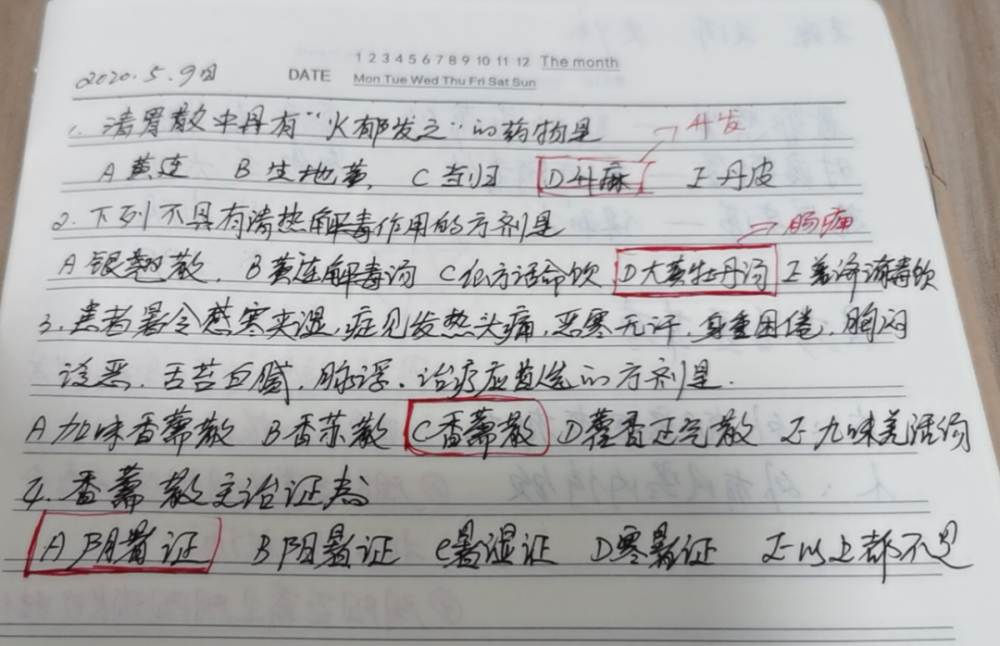 1 2 3 4 5 6 7 8 9 10 11 12 The month
2020.5.9日 DATE Mon Tue Wed Thu Fri Sat Sun
1. 清胃散中具有“火郁发之”的药物是 → 升发
A 黄连 B 生地黄, C 当归 D 升麻 E 丹皮
2. 下列不具有清热解毒作用的方剂是 → 肠痈
A 银翘散. B 黄连解毒汤 C 仙方活命饮 D 大黄牡丹汤 E 普济消毒饮
3. 患者暑令感寒夹湿,症见发热头痛,恶寒无汗,身重困倦,胸闷
泛恶.舌苔白腻.脉浮.治疗应首选的方剂是.
A 加味香薷散 B 香苏散 C 香薷散 D 藿香正气散 E 九味羌活汤
4. 香薷散主治证为
A 阴暑证 B 阳暑证 C 暑湿证 D 寒暑证 E 以上都不是